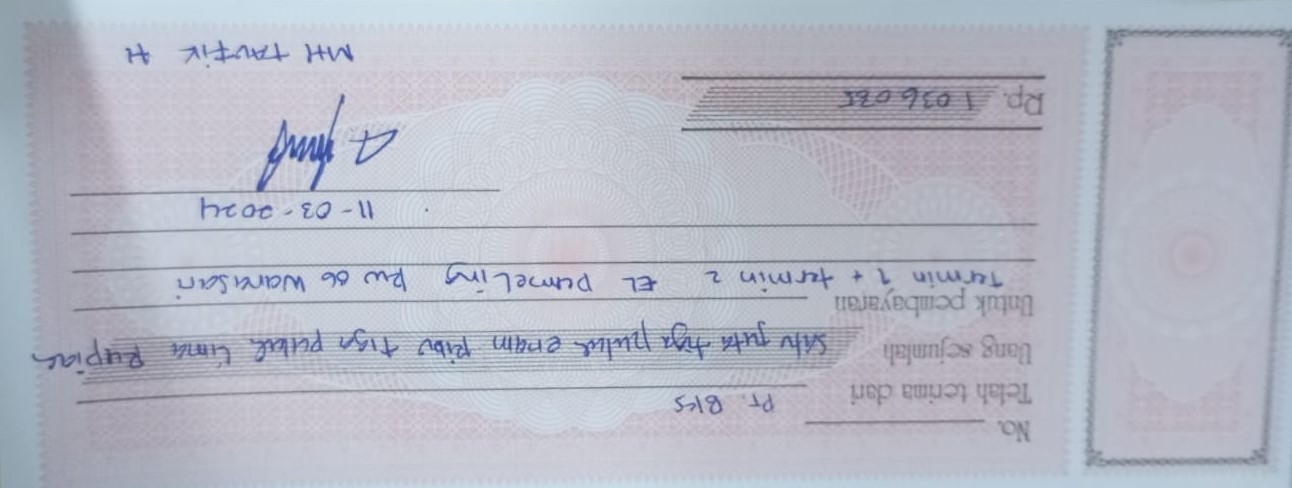 No.
Telah terima dari PT. BKS
Uang sejumlah Satu juta tiga puluh enam Ribu tiga puluh Lima Rupiah
Untuk pembayaran
Termin 1 + termin 2 EL DumeLing RW 06 Wanasari
11-03-2024
Rp. 1 036 035
MH TAUFIK H